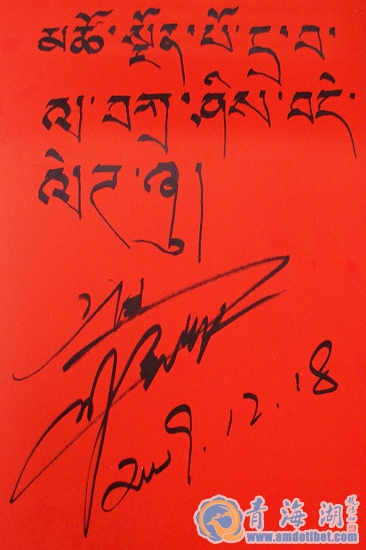 མཚོ་སྔོན་པོ་དྲ་བ་
ལ་བཀྲ་ཤིས་བདེ་
ལེཊ་ཞུ།
2009.12.18
青海湖
www.amdotibet.com